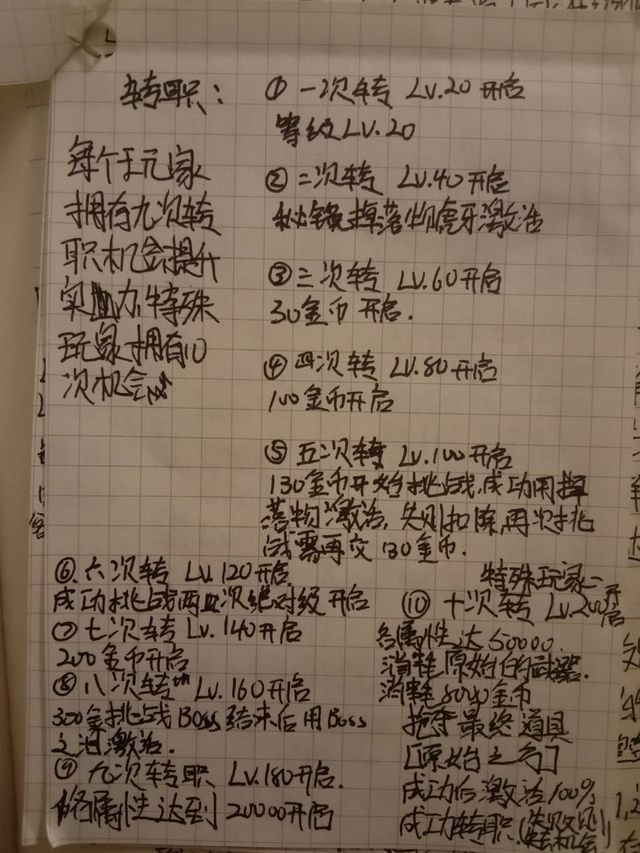 转职：
每个玩家
拥有九次转
职机会提升
实力,特殊
玩家拥有10
次机会
① 一次转 Lv.20 开启
等级Lv.20
② 二次转 Lv.40开启
掉落物虎牙激活
③ 三次转 Lv.60开启
30金币 开启.
④ 四次转 Lv.80开启
100金币开启
⑤ 五次转 Lv.100开启
130金币开始挑战,成功用掉
落物激活,失则扣除,再次挑
战需再交130金币.
⑥ 六次转 Lv.120开启
成功挑战两次绝对级开启
⑦ 七次转 Lv.140开启
200金币开启
⑧ 八次转 Lv.160开启
300金挑战Boss结束后用Boss
之泪激活.
⑨ 九次转职 Lv.180开启.
各属性达到 20000开启
特殊玩家二
⑩ 十次转 Lv.200开启
各属性达50000
消耗原始的武器.
消耗8000金币
抢夺最终道具
[原始之力]
成功后激活100%
成功转职.